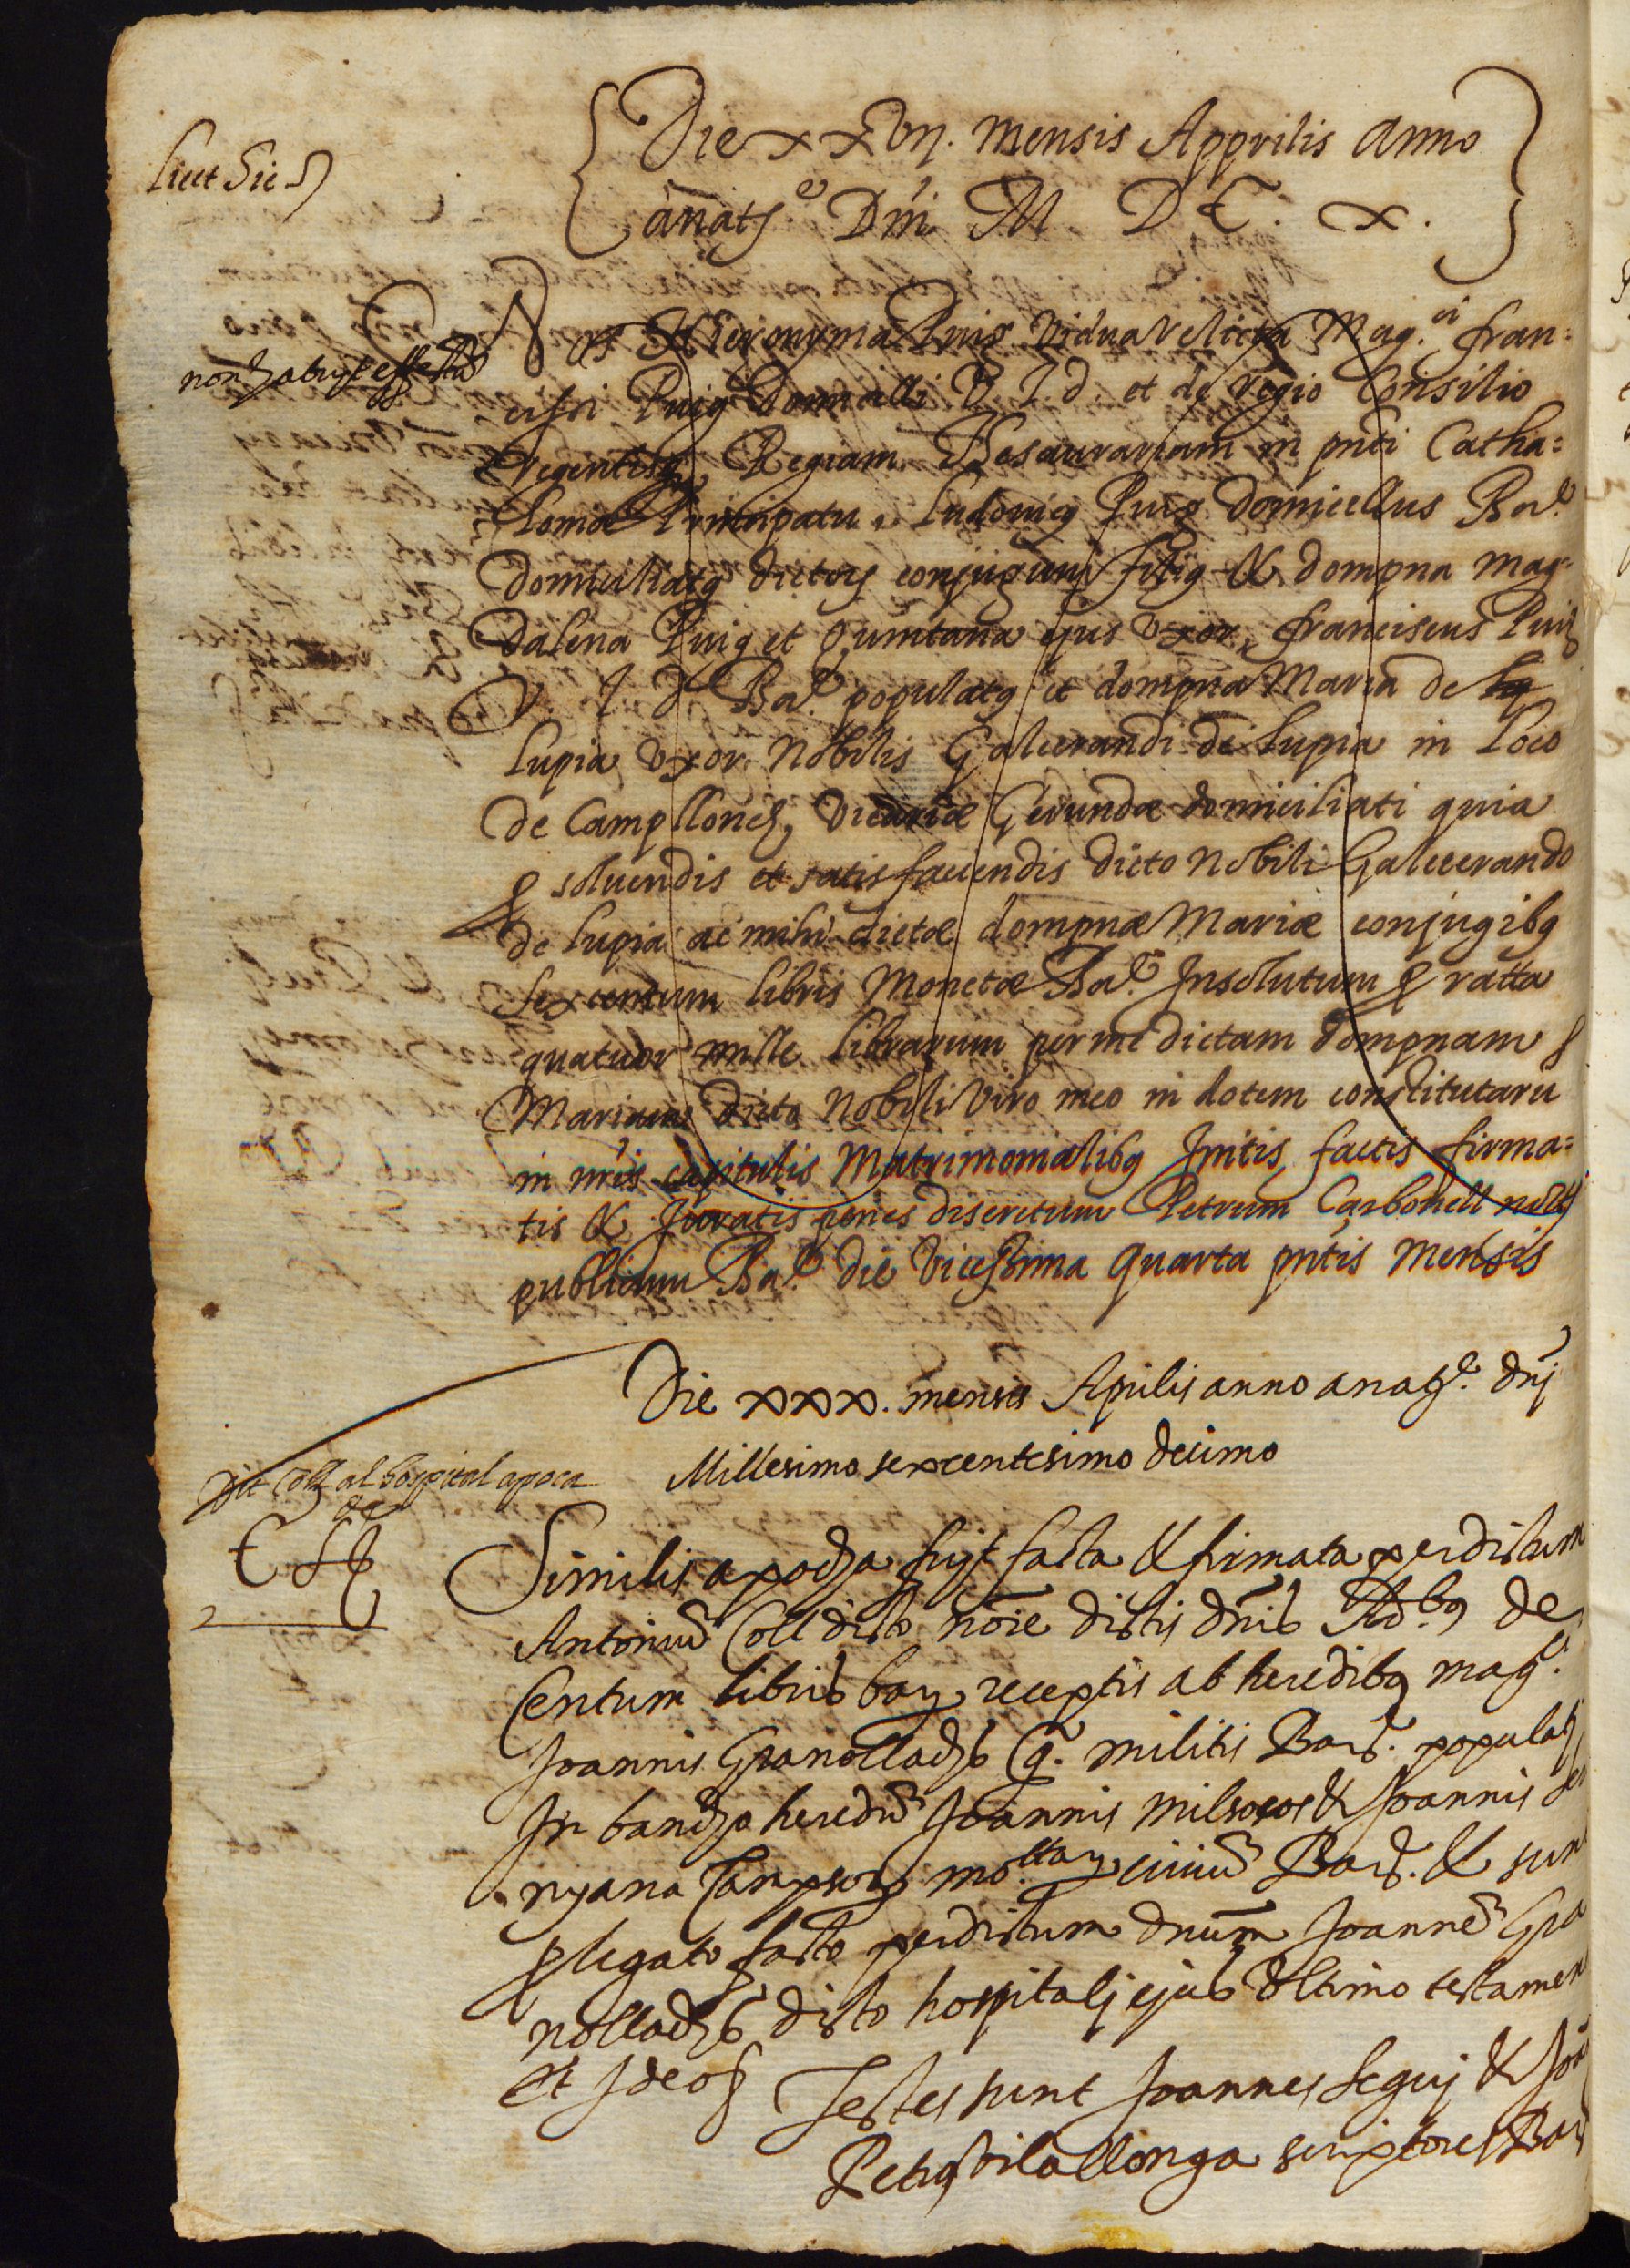 Die xxvij. mensis Apprilis anno
anat.e Dni. M DC. x.
Nos Hieronyma Puig vidua relicta Mag.ci Fran=
cisci Puig Domicelli V. I. d. et de regio Consilio
regentisq Regiam Thesaurariam in pnti Catha=
loniæ Principatu, Ludovicq Puig Domicellus Ba.e
domiciliatq dictorum conjugum filiq & dompna Mag=
dalena Puig et Quintana ejus uxor, Franciscus Puig
V. I. d. Ba.e populatq et dompna Maria de
Lupia uxor Nobilis Galcerandi de Lupia in loco
de Campllonch, Vicariæ Gerundæ domiciliati quia
p solvendis et satisfaciendis dicto Nobili Galcerando
de Lupia ac mihi dictæ dompnæ Mariæ conjugibq
sexcentum libris Monetæ Ba.e Insolutum p ratta
quatuor mille librarum per me dictam Dompnam
Mariam dicto Nobili Viro meo in dotem constitutaru
in nris capitulis Matrimonialibq Initis, factis firma=
tis & Juratis penes discretum Petrum Carbonell notm
publicum Ba.e die Vicessima Quarta pntis Mensis
Die xxx. mensis Aprilis anno a nat.e dnj
Millesimo sexcentesimo decimo
dit Coll al hospital apoca
de
C ℔
Similis apocha fuit facta & firmata per dictum
Antoniu Coll dicto noie dictis dnis Ad.bq de
Centum libris bar. receptis ab heredibq mag.ci
Joannis Granollachs q. militis Barc. populat
In bancha heredu Joannis Milsocos & Joannis
nyana Campsor civiu Barc. & sunt
p legato facto per dictum dnum Joanne Gra
nollachs dicto hospitalj ejus ultimo testamen
et Ideo
Testes sunt Joannes Seguj & Joa
Petrq Vilallonga scriptores Bar